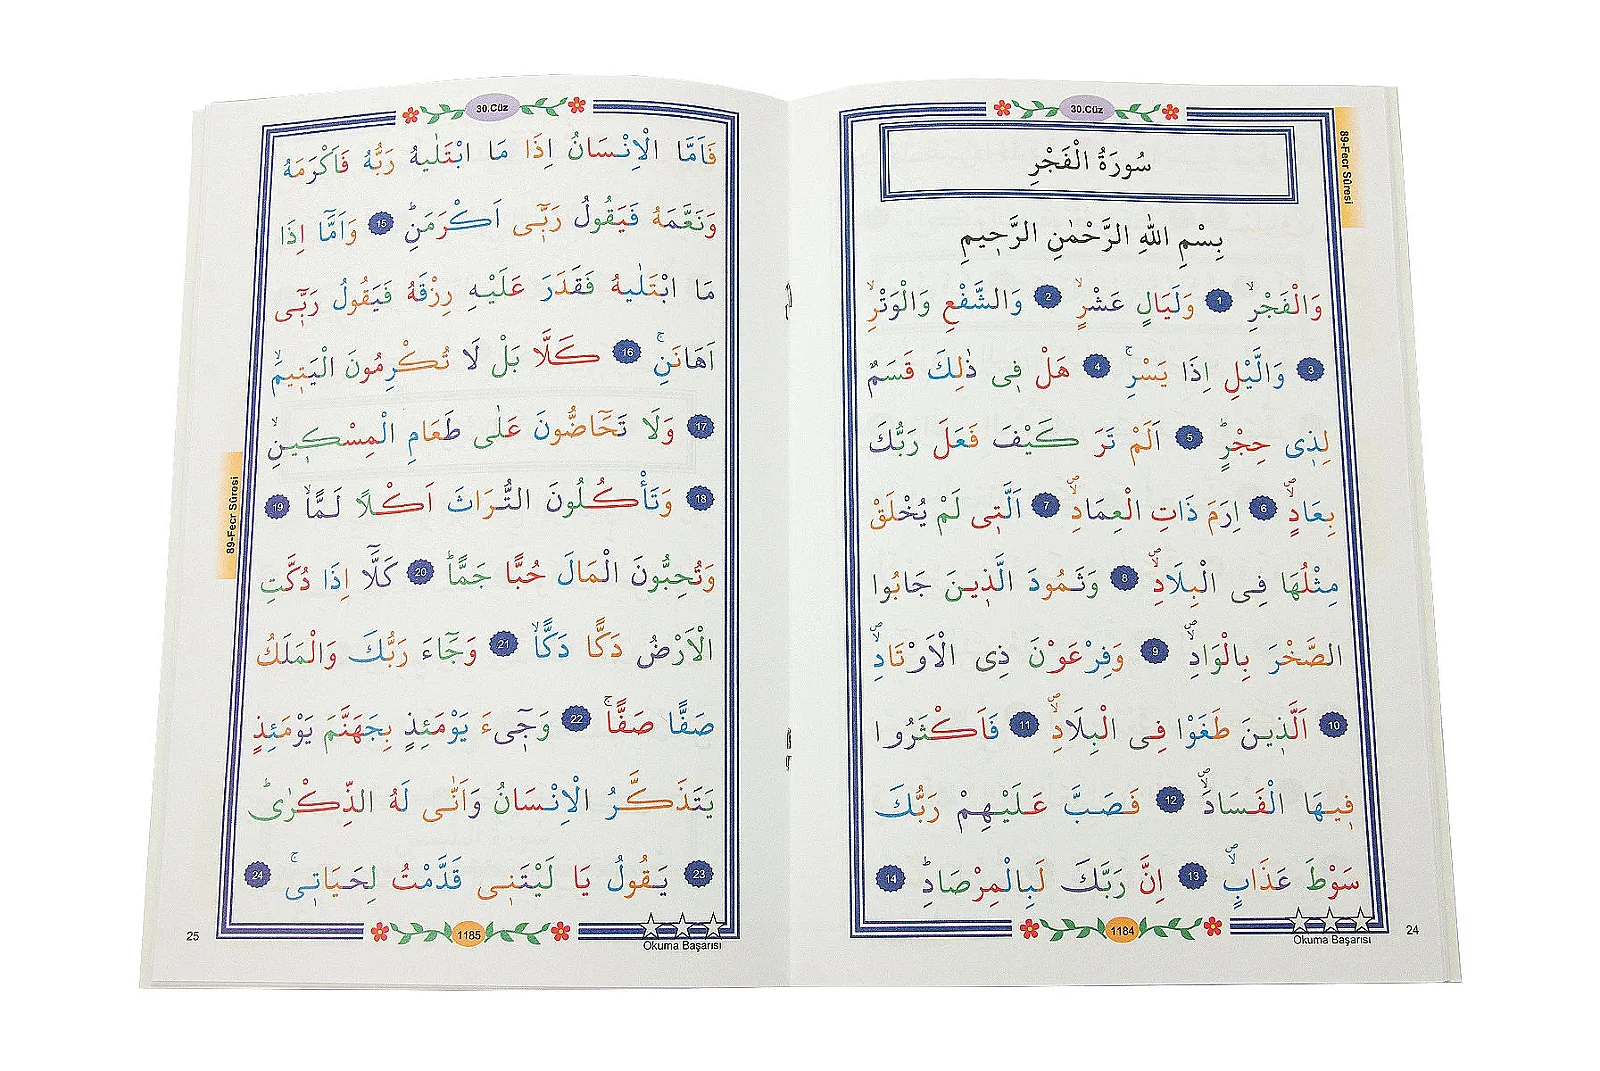 30.Cüz
89-Fecr Sûresi
سُورَةُ الْفَجْرِ
بِسْمِ اللّٰهِ الرَّحْمٰنِ الرَّح۪يمِ
وَالْفَجْرِۙ 1 وَلَيَالٍ عَشْرٍۙ 2 وَالشَّفْعِ وَالْوَتْرِۙ
3 وَالَّيْلِ اِذَا يَسْرِۚ 4 هَلْ ف۪ى ذٰلِكَ قَسَمٌ
لِذ۪ى حِجْرٍۜ 5 اَلَمْ تَرَ كَيْفَ فَعَلَ رَبُّكَ
بِعَادٍۙۖ 6 اِرَمَ ذَاتِ الْعِمَادِۙۖ 7 اَلَّت۪ى لَمْ يُخْلَقْ
مِثْلُهَا فِى الْبِلَادِۙۖ 8 وَثَمُودَ الَّذ۪ينَ جَابُوا
الصَّخْرَ بِالْوَادِۙۖ 9 وَفِرْعَوْنَ ذِى الْاَوْتَادِۙۖ
10 اَلَّذ۪ينَ طَغَوْا فِى الْبِلَادِۙۖ 11 فَاَكْثَرُوا
ف۪يهَا الْفَسَادَۙۖ 12 فَصَبَّ عَلَيْهِمْ رَبُّكَ
سَوْطَ عَذَابٍۙۖ 13 اِنَّ رَبَّكَ لَبِالْمِرْصَادِۜ 14
1184
Okuma Başarısı
24
30.Cüz
89-Fecr Sûresi
فَاَمَّا الْاِنْسَانُ اِذَا مَا ابْتَلٰيهُ رَبُّهُ فَاَكْرَمَهُ
وَنَعَّمَهُ فَيَقُولُ رَبّ۪ٓى اَكْرَمَنِۜ 15 وَاَمَّٓا اِذَا
مَا ابْتَلٰيهُ فَقَدَرَ عَلَيْهِ رِزْقَهُ فَيَقُولُ رَبّ۪ٓى
اَهَانَنِۚ 16 كَلَّا بَلْ لَا تُكْرِمُونَ الْيَت۪يمَۙ
17 وَلَا تَحَٓاضُّونَ عَلٰى طَعَامِ الْمِسْك۪ينِۙ
18 وَتَأْكُلُونَ التُّرَاثَ اَكْلًا لَمًّاۙ 19
وَتُحِبُّونَ الْمَالَ حُبًّا جَمًّاۜ 20 كَلَّٓا اِذَا دُكَّتِ
الْاَرْضُ دَكًّا دَكًّاۙ 21 وَجَٓاءَ رَبُّكَ وَالْمَلَكُ
صَفًّا صَفًّاۚ 22 وَج۪ٓىءَ يَوْمَئِذٍ بِجَهَنَّمَ يَوْمَئِذٍ
يَتَذَكَّرُ الْاِنْسَانُ وَاَنّٰى لَهُ الذِّكْرٰىۜ
23 يَقُولُ يَا لَيْتَن۪ى قَدَّمْتُ لِحَيَات۪ىۚ 24
1185
Okuma Başarısı
25